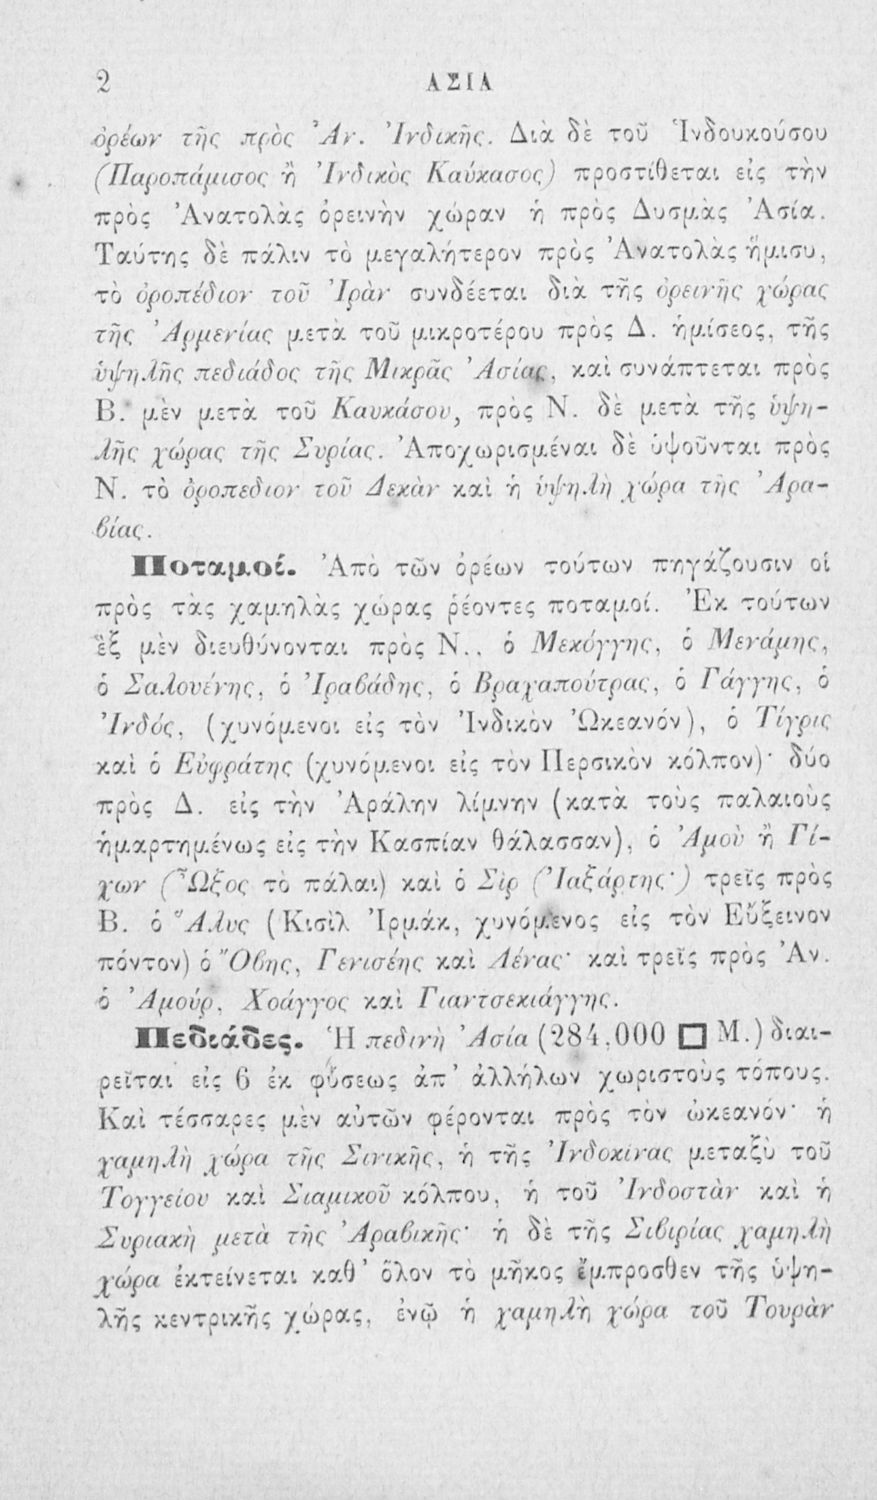 2 ΑΣΙΑ
ὀρέων τῆς πρὸς Ἀν. Ἰνδικῆς. Διὰ δὲ τοῦ Ἱνδουκούσου
(Παροπάμισος ἢ Ἰνδικὸς Καύκασος) προστίθεται εἰς τὴν
πρὸς Ἀνατολὰς ὀρεινὴν χώραν ἡ πρὸς Δυσμὰς Ἀσία.
Ταύτης δὲ πάλιν τὸ μεγαλήτερον πρὸς Ἀνατολὰς ἥμισυ,
τὸ ὀροπέδιον τοῦ Ἰρὰν συνδέεται διὰ τῆς ὀρεινῆς χώρας
τῆς Ἀρμενίας μετὰ τοῦ μικροτέρου πρὸς Δ. ἡμίσεος, τῆς
ὑψηλῆς πεδιάδος τῆς Μικρᾶς Ἀσίας, καὶ συνάπτεται πρὸς
Β. μὲν μετὰ τοῦ Καυκάσου, πρὸς Ν. δὲ μετὰ τῆς ὑψη-
λῆς χώρας τῆς Συρίας. Ἀποχωρισμέναι δὲ ὑψοῦνται πρὸς
Ν. τὸ ὀροπεδιον τοῦ Δεκὰν καὶ ἡ ὑψηλὴ χώρα τῆς Ἀρα-
βίας.
Ποταμοί. Ἀπὸ τῶν ὀρέων τούτων πηγάζουσιν οἱ
πρὸς τὰς χαμηλὰς χώρας ῥέοντες ποταμοί. Ἐκ τούτων
ἓξ μὲν διευθύνονται πρὸς Ν., ὁ Μεκόγγης, ὁ Μενάμης,
ὁ Σαλουένης, ὁ Ἰραβάδης, ὁ Βραχαπούτρας, ὁ Γάγγης, ὁ
Ἰνδός, (χυνόμενοι εἰς τὸν Ἰνδικὸν Ὠκεανόν), ὁ Τίγρις
καὶ ὁ Εὐφράτης (χυνόμενοι εἰς τὸν Περσικὸν κόλπον)· δύο
πρὸς Δ. εἰς τὴν Ἀράλην λίμνην (κατὰ τοὺς παλαιοὺς
ἡμαρτημένως εἰς τὴν Κασπίαν θάλασσαν), ὁ Ἀμοὺ ἢ Γί-
χων (Ὦξος τὸ πάλαι) καὶ ὁ Σὶρ (Ἰαξάρτης·) τρεῖς πρὸς
Β. ὁ Ἅλυς (Κισὶλ Ἰρμάκ, χυνόμενος εἰς τὸν Εὔξεινον
πόντον) ὁ Ὄβης, Γενισέης καὶ Λένας· καὶ τρεῖς πρὸς Ἀν.
ὁ Ἀμούρ, Χοάγγος καὶ Γιαντσεκιάγγης.
Πεδιάδες. Ἡ πεδινὴ Ἀσία (284,000 □ Μ.) διαι-
ρεῖται εἰς 6 ἐκ φύσεως ἀπ’ ἀλλήλων χωριστοὺς τόπους.
Καὶ τέσσαρες μὲν αὐτῶν φέρονται πρὸς τὸν ὠκεανόν· ἡ
χαμηλὴ χώρα τῆς Σινικῆς, ἡ τῆς Ἰνδοκίνας μεταξὺ τοῦ
Τογγείου καὶ Σιαμικοῦ κόλπου, ἡ τοῦ Ἰνδοστὰν καὶ ἡ
Συριακὴ μετὰ τῆς Ἀραβικῆς· ἡ δὲ τῆς Σιβιρίας χαμηλὴ
χώρα ἐκτείνεται καθ’ ὅλον τὸ μῆκος ἔμπροσθεν τῆς ὑψη-
λῆς κεντρικῆς χώρας, ἐνῷ ἡ χαμηλὴ χώρα τοῦ Τουρὰν